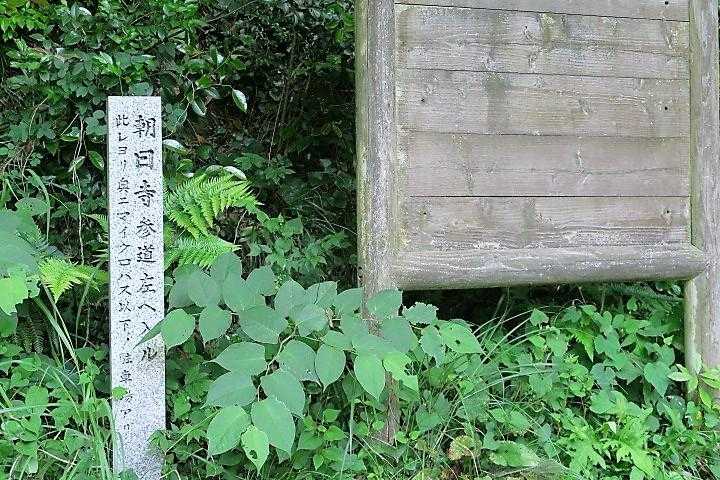 朝日寺参道左へ入ル
此レヨリ奥ニマイクロバス以下ノ駐車場アリ